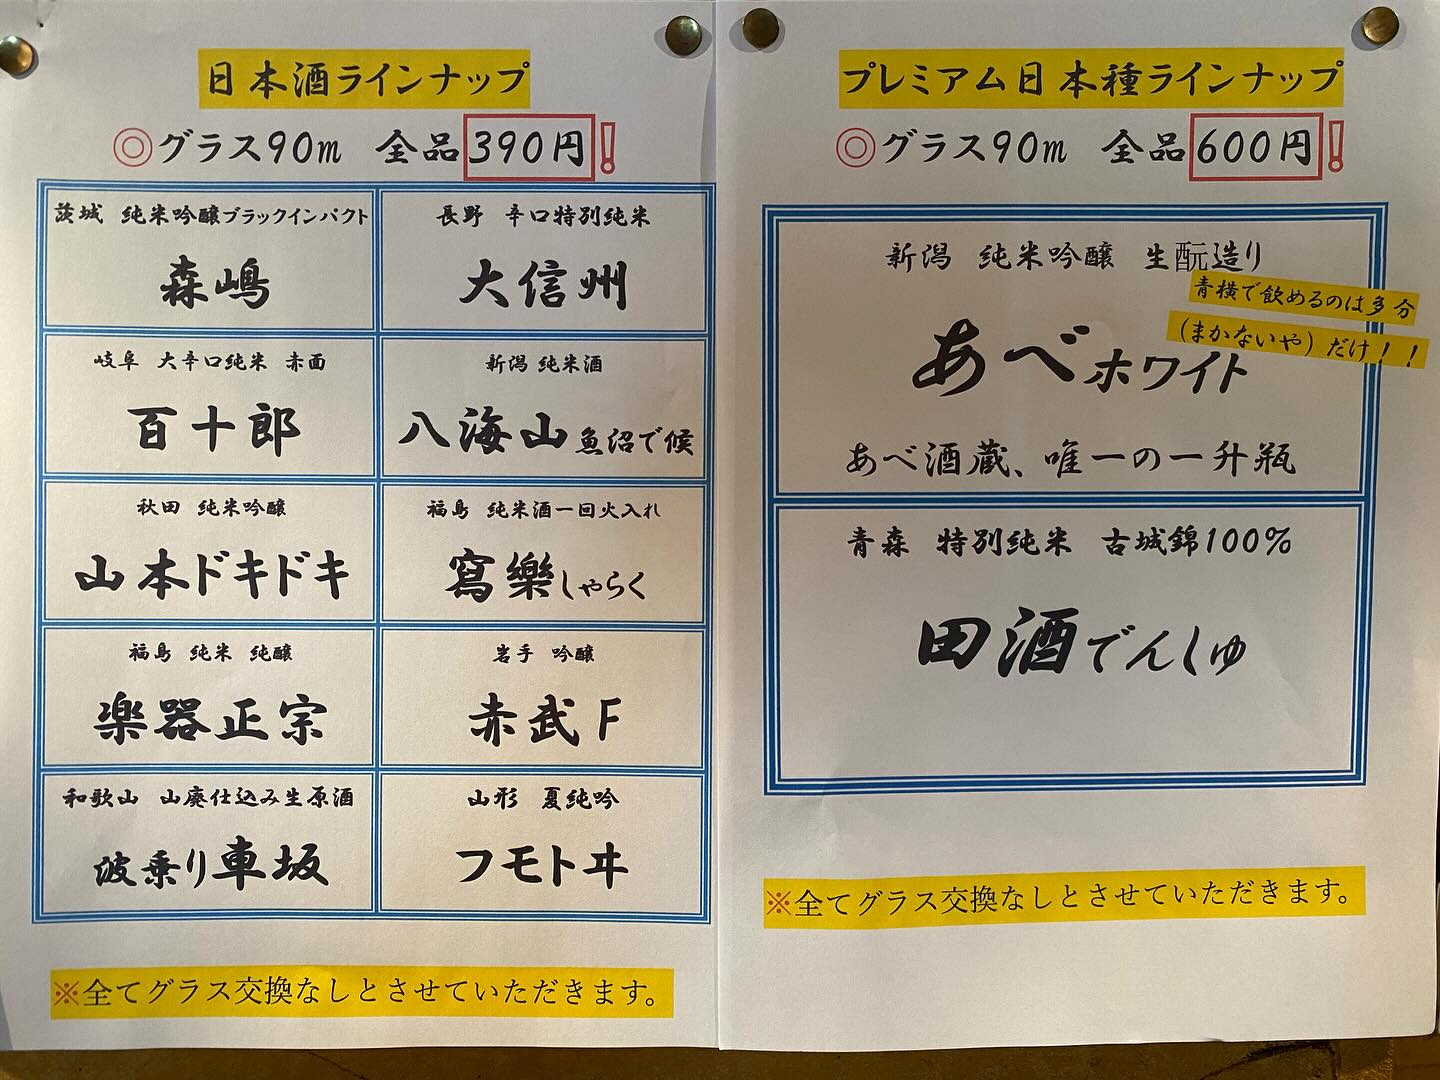 日本酒ラインナップ
◎グラス90m 全品390円!
茨城 純米吟醸ブラックインパクト
森嶋
長野 辛口特別純米
大信州
岐阜 大辛口純米 赤面
百十郎
新潟 純米酒
八海山 魚沼で候
秋田 純米吟醸
山本ドキドキ
福島 純米酒一回火入れ
寫樂しゃらく
福島 純米 純醸
楽器正宗
岩手 吟醸
赤武F
和歌山 山廃仕込み生原酒
波乗り車坂
山形 夏純吟
フモトヰ
※全てグラス交換なしとさせていただきます。
プレミアム日本種ラインナップ
◎グラス90m 全品600円!
新潟 純米吟醸 生酛造り
青横で飲めるのは多分
(まかないや)だけ!!
あべホワイト
あべ酒蔵、唯一の一升瓶
青森 特別純米 古城錦100%
田酒でんしゅ
※全てグラス交換なしとさせていただきます。